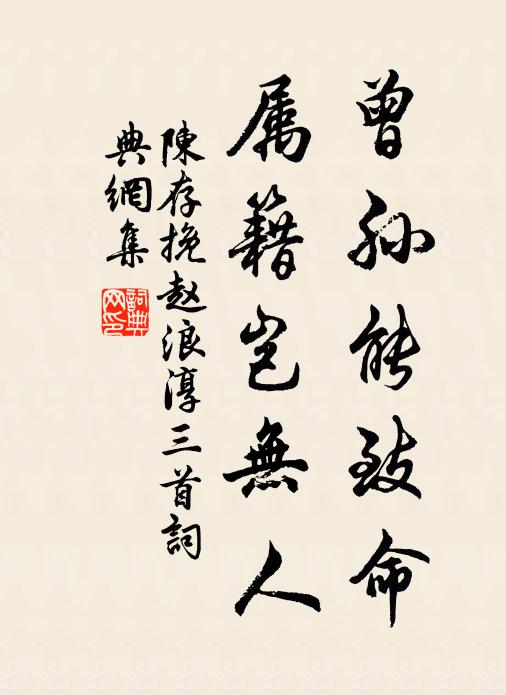 曾孙能致命
属籍岂無人
陳存挽赵浪淳三首詞
典網集
詞典
网印